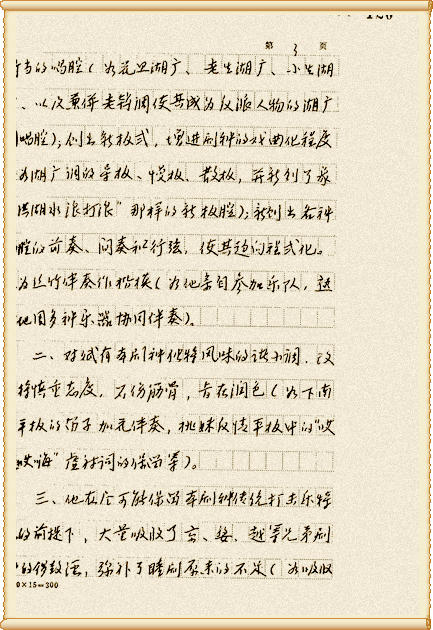 第 3 页
行当的唱腔(如花旦湖广、老生湖广、小生湖
、以及兼併老韩调使其成为反派人物的湖广
唱腔);创出新板式,增进剧种的戏曲化程度
如湖广调的导板、慢板、散板,并新创了象
洪湖水浪打浪"那样的新板腔);新创出各种
腔的前奏、间奏和行弦,使其边向程式化。
为丝竹伴奏作楷模(如他亲自参加乐队,
他因多种乐器协同伴奏)。
二、对域有本剧种优特风味的小调,
持慎重态度,不伤筋骨,旨在润色(如下南
平板的加花伴奏,桃妹反情平板中的"哎
哎嗨"虚衬词的保留等)。
三、他在尽可能保留本剧种传统打击乐特
的前提下,大量吸收了京、楚、越等兄弟剧
的锣鼓,弥补了睦剧原来的不足(如吸收
0×15=300